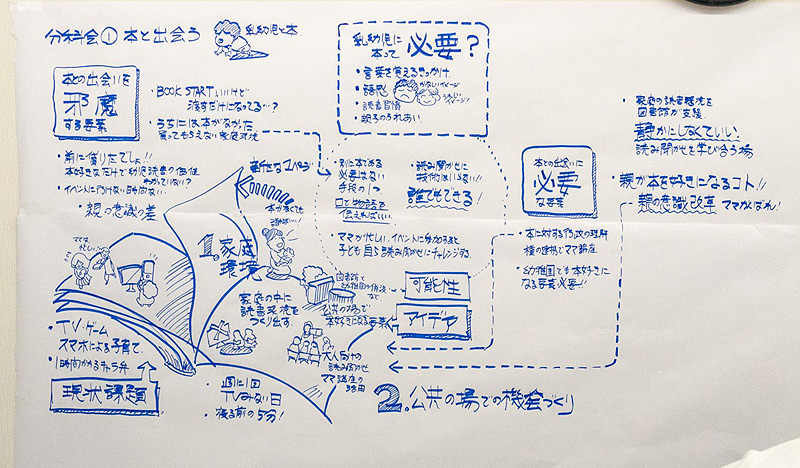 分科会① 本と出会う
乳幼児と本
本との出会いを
邪魔
する要素
・BOOK STARTいいけど
渡すだけになってる…?
・うちには本がなかった
買ってもらえない家庭環境
乳幼児に
本って 必要?
・言葉を覚えるきっかけ
・語感
・読書習慣
・親子のふれあい
・家庭の読書環境を
図書館が支援
静かにしなくていい
読み聞かせを学び合う場
・親が本を好きになるコト!!
親の意識改革 ママがんばれ!
・前に借りたでしょ!!
本好きなだけで幼児読書の価値
わかっていない?
・イベントに行けない時間ない
・親の意識の差
本がなくても
・別に本である
必要はない
手段の1つ
口で物語を
伝えればいい
・読み聞かせに
技術はいらない!!
誰でもできる!
・ママが忙しい。イベントに参加すると
子ども自ら読み聞かせにチャレンジする。
本との出会いに
必要
な要素
・本に対する行政の理解
横の連携でママ講座
・幼稚園でも本好きに
なる要素必要!!
ママは
忙しい
1. 家庭
環境
家庭の中に
読書環境を
つくり出す。
図書館で
公共の場で
本好きになる要素
可能性
アイデア
大人向け
読み聞かせ
ママ講座の
活用
・TV・ゲーム
スマホによる子育て。
・1時間かかるキャラ弁
現状課題
・週に1回
TVみない日
・寝る前の5分!
2. 公共の場での機会づくり